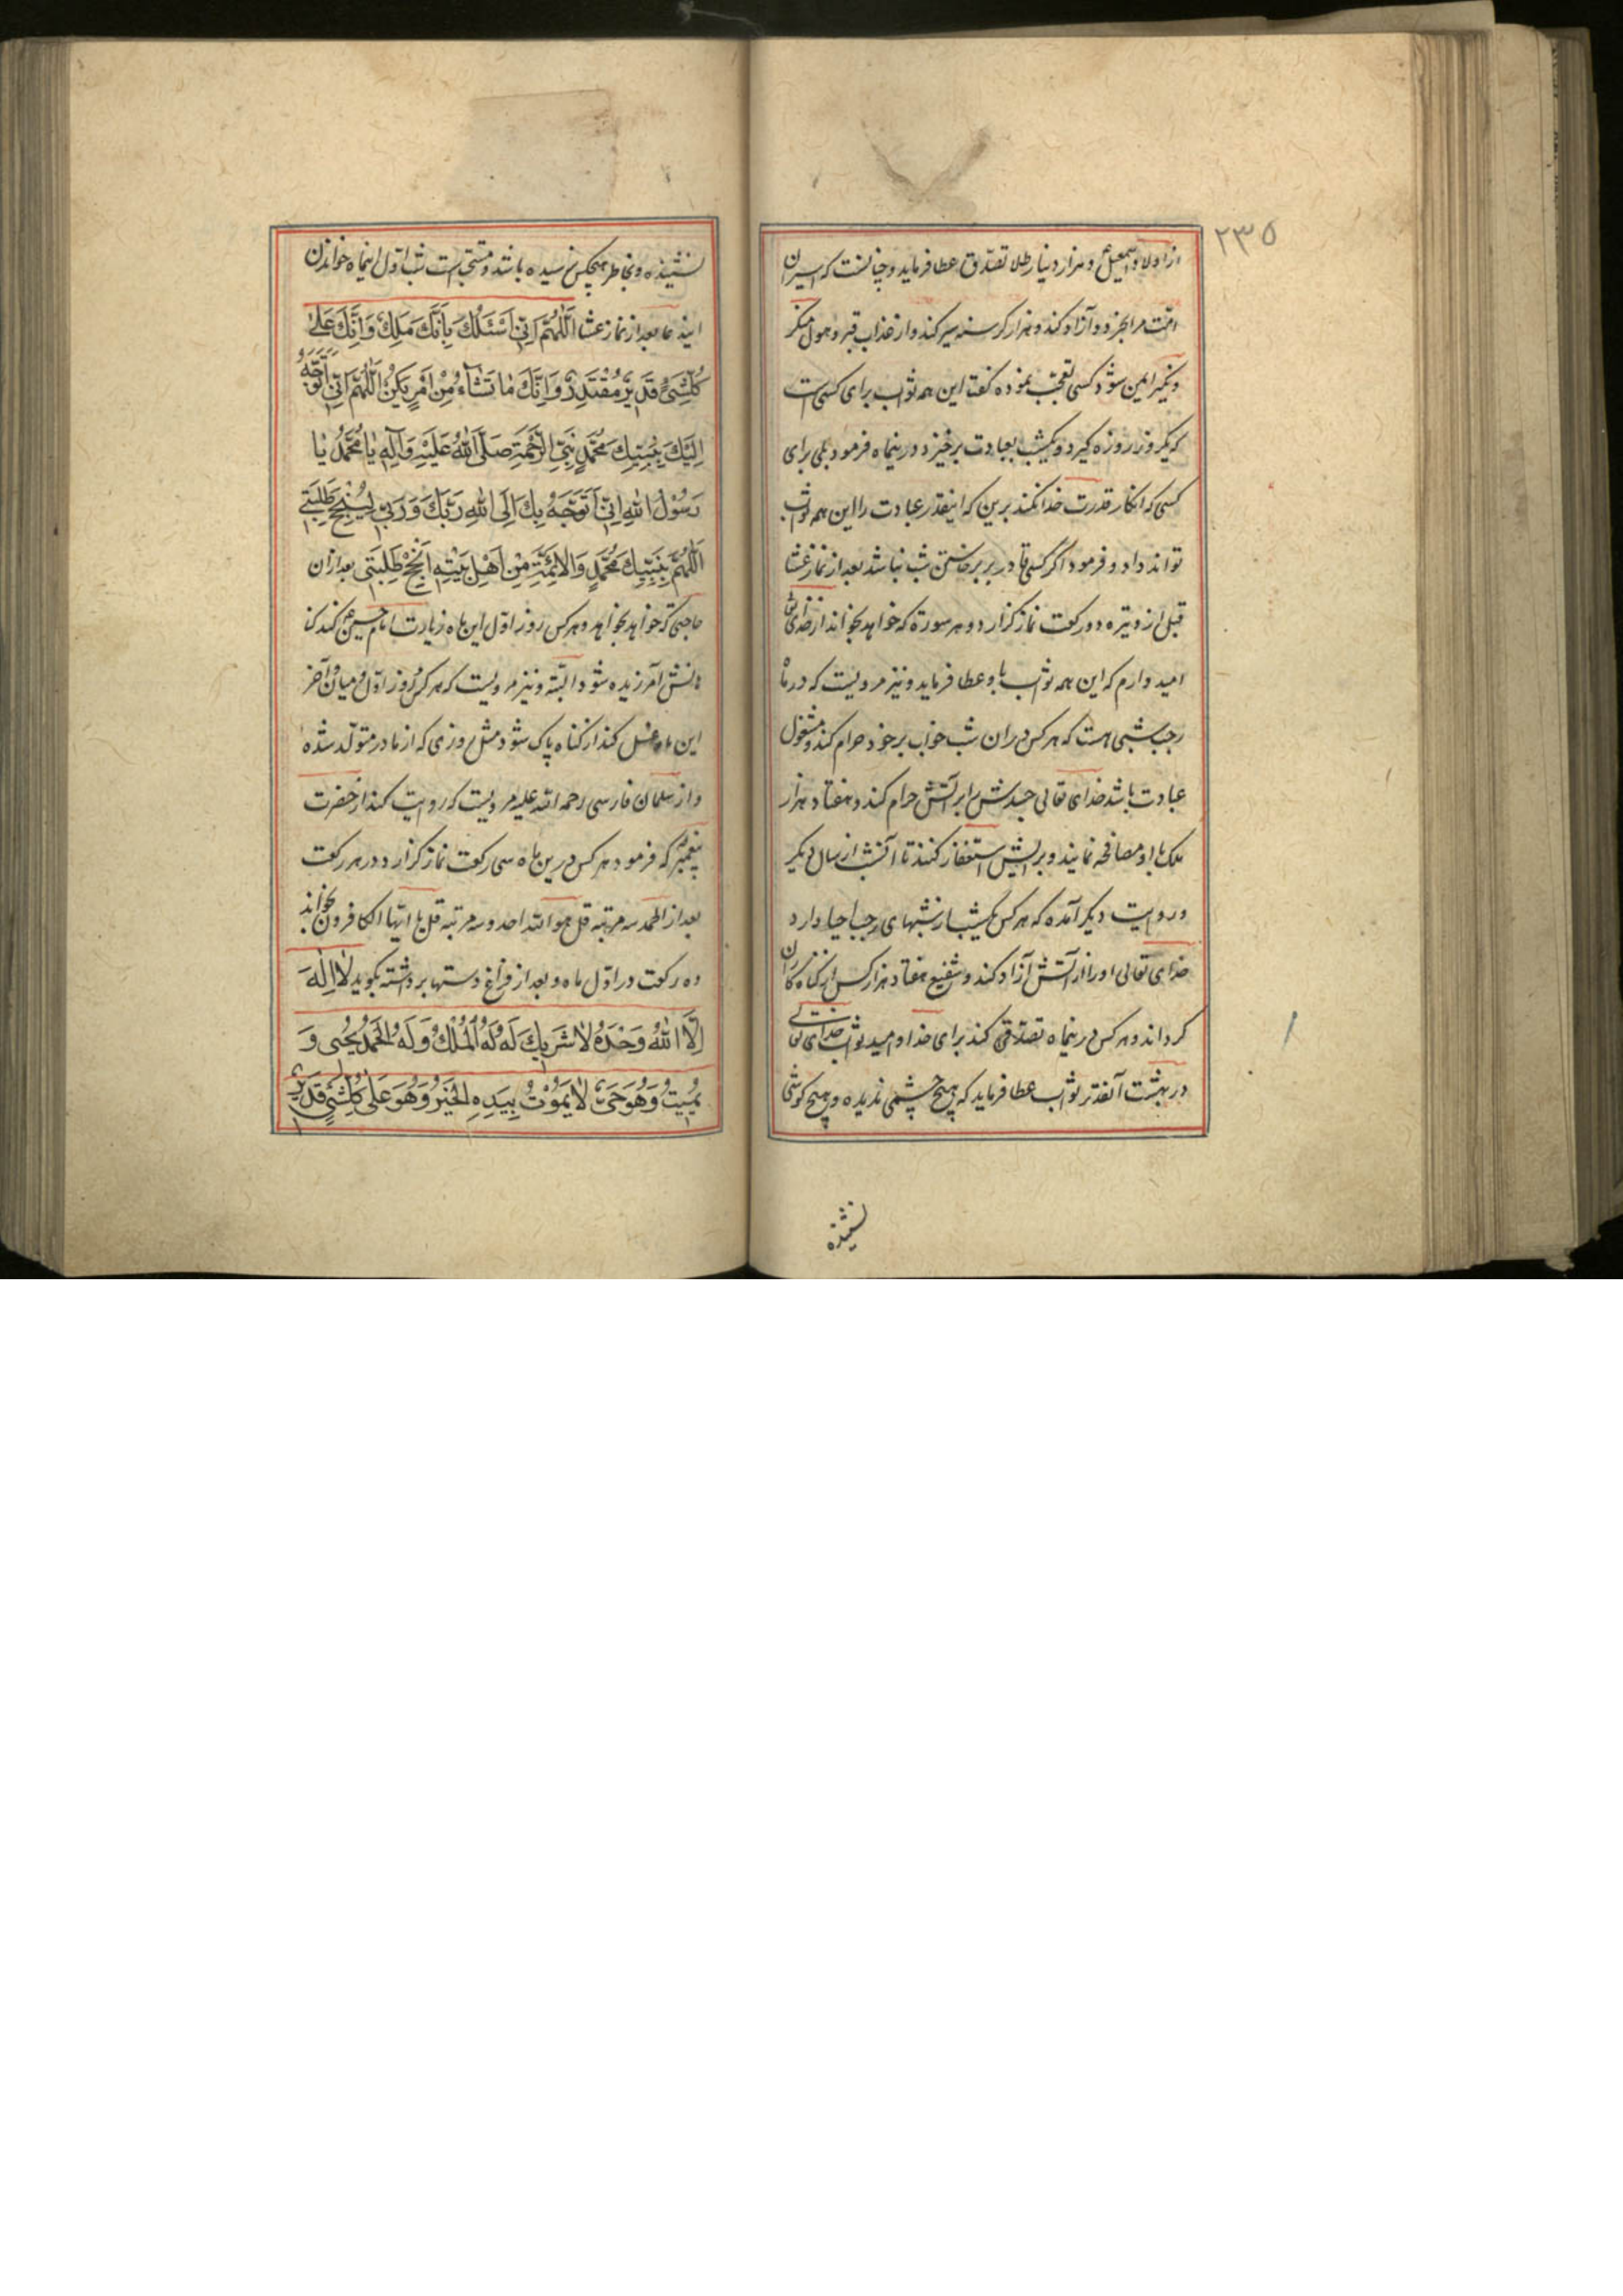 ۲۳۵
از اولاد اسمعیل و هزار دینار طلا تصدق عطا فرماید و چنانست که اسیران
امت مرا بخرد و آزاد کند و هزار گرسنه سیر کند و از عذاب قبر و هول منکر
و نکیر ایمن شود کسی تعجب نموده گفت این همه ثواب برای کسی است
که یکروز روزه گیرد و یکشب بعبادت برخیزد درینماه فرمود بلی برای
کسی که انکار قدرت خدا نکند برین که اینقدر عبادت را این همه ثواب
تواند داد و فرمود اگر کسی قادر بر برخاستن شب نباشد بعد از نماز عشا
قبل از وتیره دو رکعت نماز گزارد و هر سورة که خواهد بخواند از خدای تعالی
امید دارم که این همه ثواب باو عطا فرماید و نیز مرویست که در ماه
رجب شبی هست که هر کس دران شب خواب بر خود حرام کند و مشغول
عبادت باشد خدای تعالی جسدش را بر آتش حرام کند و هفتاد هزار
ملک با او مصافحه نمایند و برایش استغفار کنند تا آنشب از سال دیگر
و روایت دیگر آمده که هر کس یکشب از شبهای رجب احیا دارد
خدای تعالی او را از آتش آزاد کند و شفیع هفتاد هزار کس از گناه کاران
گرداند و هر کس درینماه تصدقی کند برای خدا و امید ثواب خدای تعالی
در بهشت آنقدر ثواب عطا فرماید که هیچ چشمی ندیده و هیچ گوشی
نشنیده
نشنیده و بخاطر هیچکس نرسیده باشد و مستحب است شب اول اینماه خواندن
ایندعا بعد از نماز عشا اَللّٰهُمَّ اِنّی اَسْئَلُكَ بِاَنَّكَ مَلِكٌ وَاِنَّكَ عَلیٰ
كُلِّشَیْءٍ قَدیرٌ مُقْتَدِرٌ وَاِنَّكَ مٰا تَشٰآءُ مِنْ اَمْرٍ یَكُنْ اَللّٰهُمَّ اِنّی اَتَوَجَّهُ
اِلَیْكَ بِنَبِیِّكَ مُحَمَّدٍ نَبِیِّ الرَّحْمَةِ صَلَّی اللّٰهُ عَلَیْهِ وَآلِهِ یٰا مُحَمَّدُ یٰا
رَسُوْلَ اللّٰهِ اِنّی اَتَوَجَّهُ بِكَ اِلَی اللّٰهِ رَبِّكَ وَرَبّی لِیُنْجِحَ طَلِبَتی
اَللّٰهُمَّ بِنَبِیِّكَ مُحَمَّدٍ وَالْاَئِمَّةِ مِنْ اَهْلِ بَیْتِهِ اَنْجِحْ طَلِبَتی بعد ازان
حاجتی که خواهد بخواهد و هر کس روز اول این ماه زیارت امام حسین کند گنا
هانش آمرزیده شود البته و نیز مرویست که هر کس روز اول و میان و آخر
این ماه غسل کند از گناه پاک شود مثل روزی که از مادر متولد شده
و از سلمان فارسی رحمه الله علیه مرویست که روایت کند از حضرت
پیغمبر که فرمود هر کس درین ماه سی رکعت نماز گزارد در هر رکعت
بعد از الحمد سه مرتبه قل هو الله احد و سه مرتبه قل یا ایها الکافرون بخواند
ده رکعت در اول ماه و بعد از فراغ دستها برداشته بگوید لٰا اِلٰهَ
اِلَّا اللّٰهُ وَحْدَهُ لٰا شَریكَ لَهُ لَهُ الْمُلْكُ وَلَهُ الْحَمْدُ یُحْیی وَ
یُمیتُ وَهُوَ حَیٌّ لٰا یَمُوْتُ بِیَدِهِ الْخَیْرُ وَهُوَ عَلیٰ كُلِّشَیْءٍ قَدیرٌ